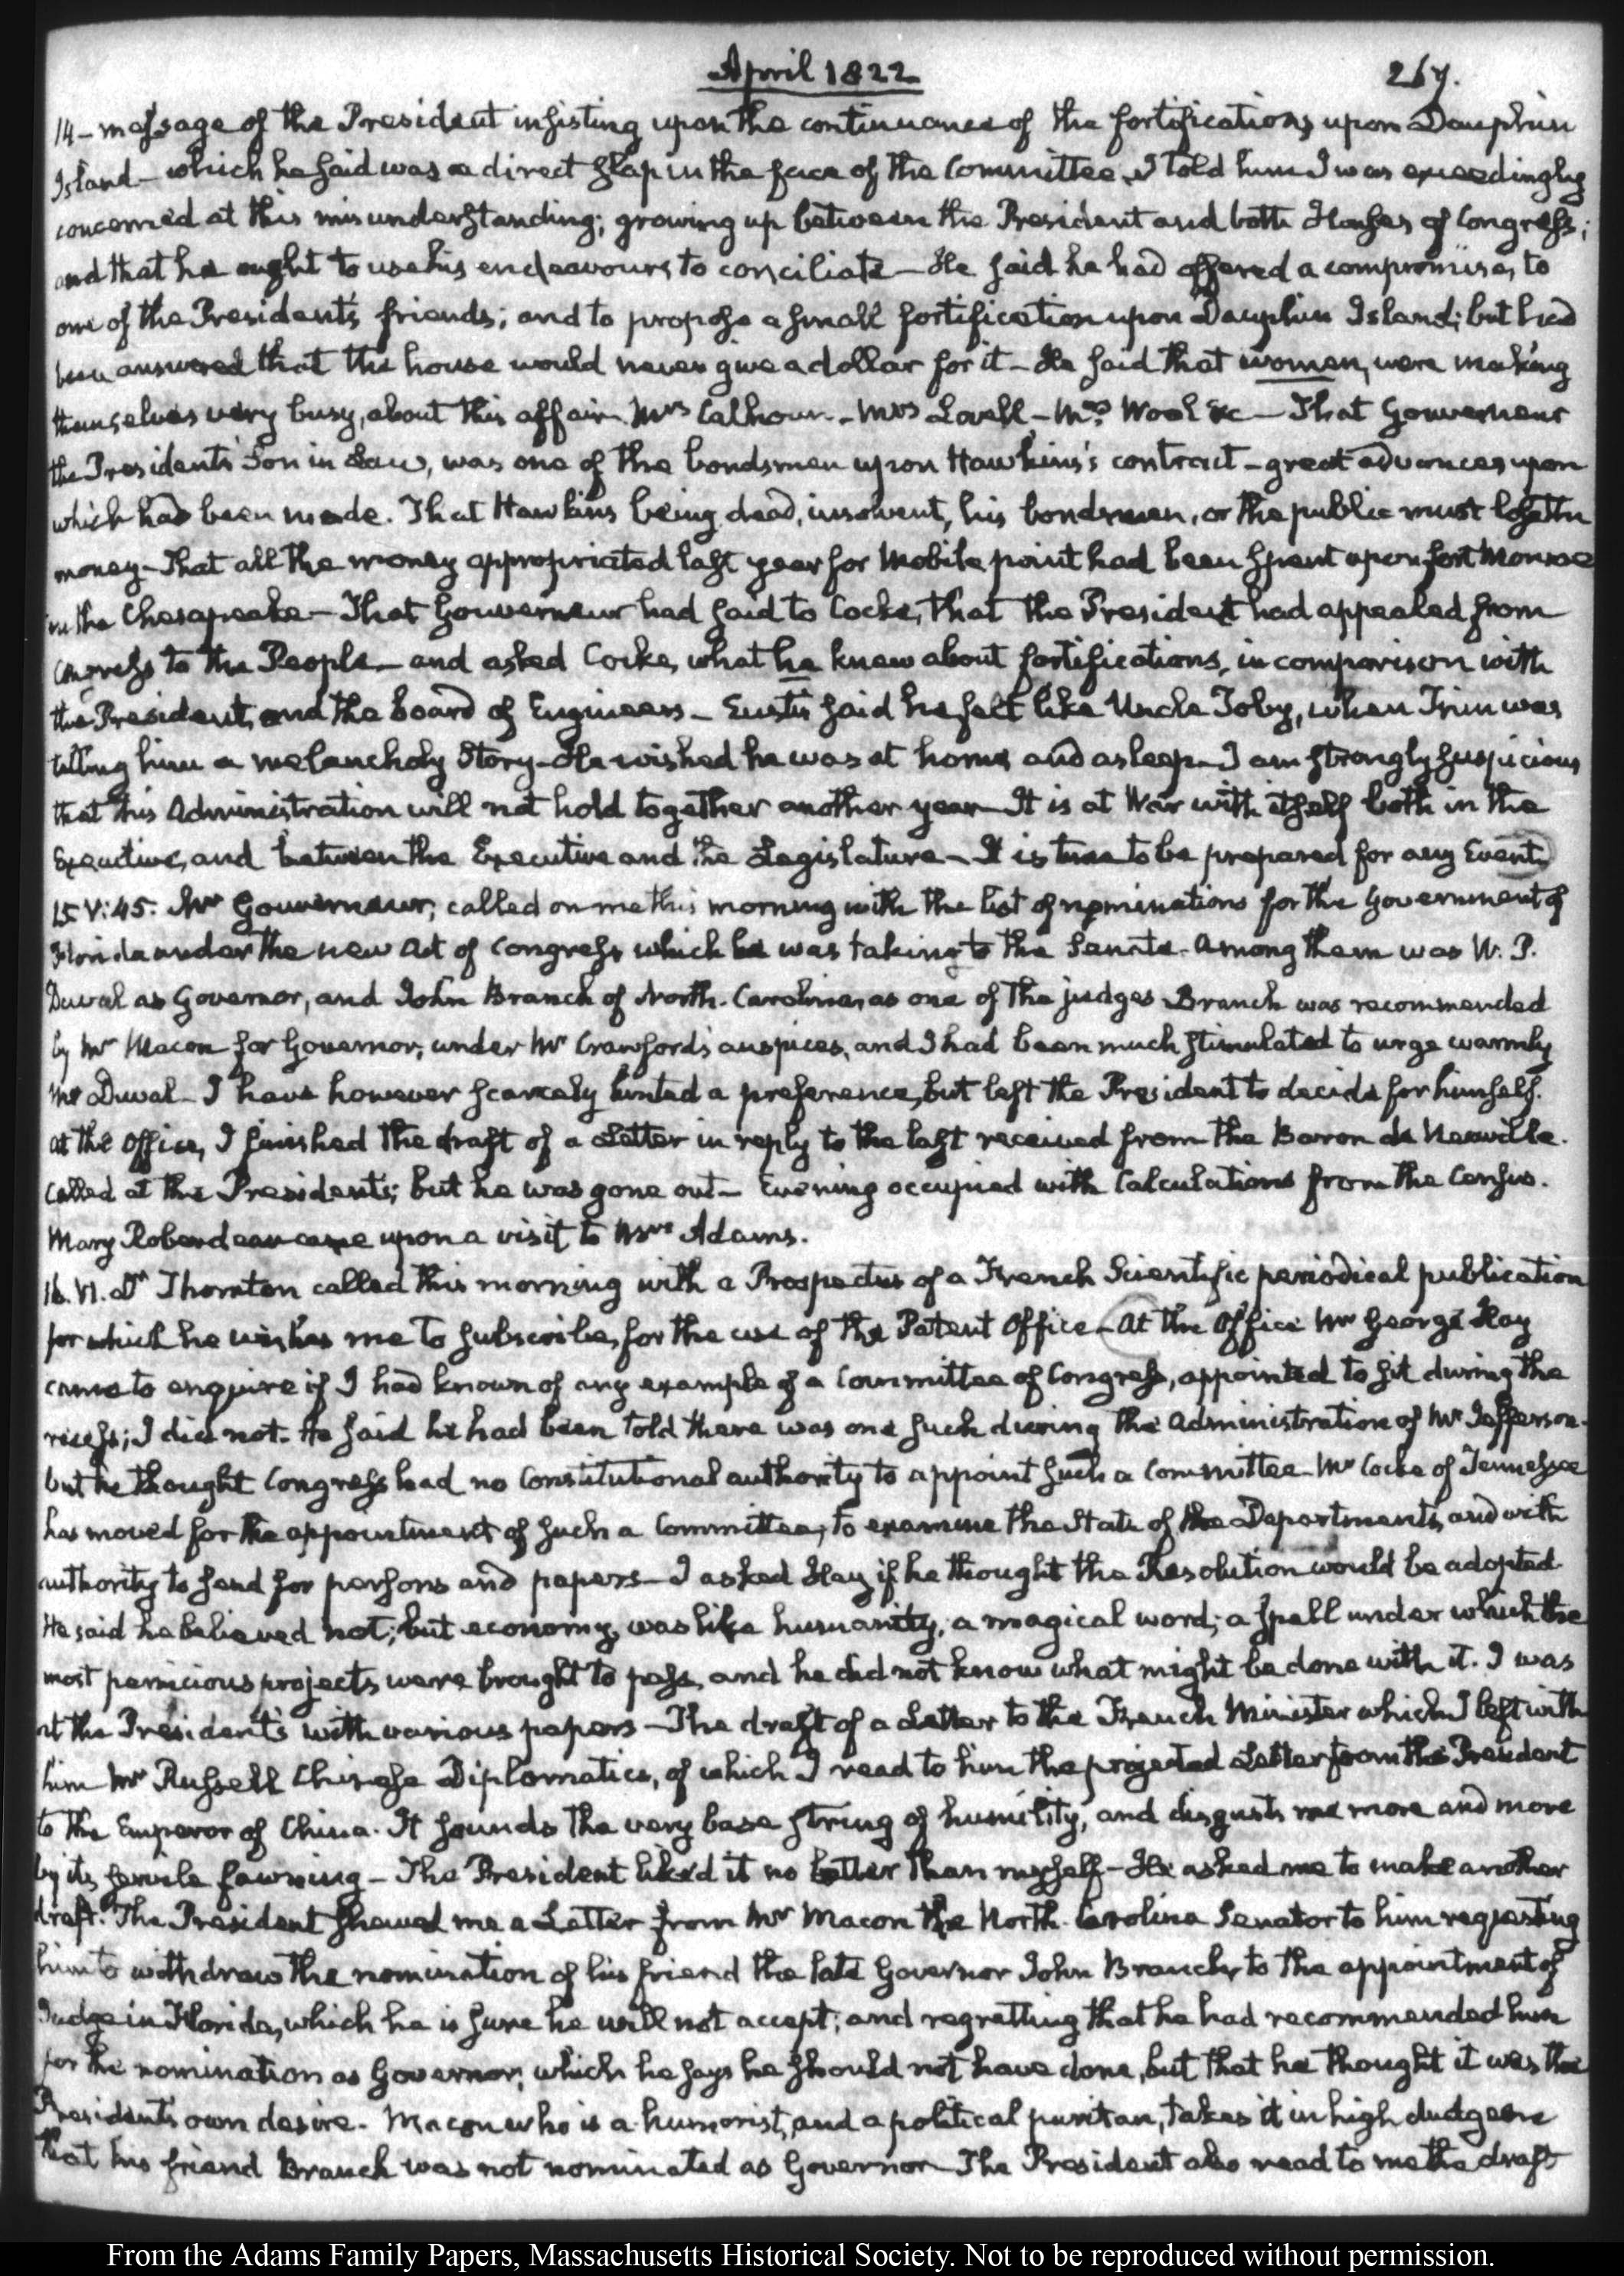 April 1822
267.
14 – message of the President insisting upon the continuance of the fortifications upon Dauphin
Island – which he said was a direct slap in the face of the Committee. I told him I was exceedingly
concerned at this misunderstanding; growing up between the President and both Houses of Congress;
and that he ought to use his endeavours to conciliate – He said he had offered a compromise, to
one of the President's friends; and to propose a small fortification upon Dauphin Island; but had
been answered that the house would never give a dollar for it – He said that women, were making
themselves very busy, about this affair. Mrs Calhoun – Mrs Lovell – Mrs Wool &c – That Gouverneur
the President's Son in Law, was one of the bondsmen upon Hawkins's contract – great advances upon
which had been made. That Hawkins being dead, insolvent, his bondsmen, or the public must lose the
money – That all the money appropriated last year for Mobile point had been spent upon fort Monroe
in the Chesapeake – That Gouverneur had said to Cocke, that the President had appealed from
Congress to the People – and asked Cocke, what he knew about fortifications, in comparison with
the President, and the board of Engineers – Eustis said he felt like Uncle Toby, when Trim was
telling him a melancholy Story – He wished he was at home and asleep – I am strongly suspicious
that this Administration will not hold together another year – It is at War with itself both in the
Executive, and between the Executive and the Legislature – It is time to be prepared for any Event.
15. V:45. Mr Gouverneur, called on me this morning with the list of nominations for the Government of
Florida under the new Act of Congress which he was taking to the Senate. Among them was W. P.
Duval as Governor, and John Branch of North-Carolina, as one of the judges. Branch was recommended
by Mr Macon for Governor, under Mr Crawford's auspices, and I had been much stimulated to urge warmly
Mr Duval – I have however scarcely hinted a preference, but left the President to decide for himself.
At the Office, I finished the draft of a Letter in reply to the last received from the Baron de Neuville.
Called at the President's; but he was gone out – Evening occupied with Calculations from the Census.
Mary Roberdeau came upon a visit to Mrs Adams.
16. VI. Dr Thornton called this morning with a Prospectus of a French Scientific periodical publication
for which he wishes me to subscribe, for the use of the Patent Office – At the Office Mr George Hay
came to enquire if I had known of any example of a Committee of Congress, appointed to sit during the
recess; I did not. He said he had been told there was one such during the Administration of Mr Jefferson –
but he thought Congress had no Constitutional authority to appoint such a Committee – Mr Cocke of Tennessee
has moved for the appointment of such a Committee, to examine the State of the Departments, and with
authority to send for persons and papers – I asked Hay if he thought the Resolution would be adopted.
He said he believed not; but economy, was like humanity, a magical word; a spell under which the
most pernicious projects were brought to pass, and he did not know what might be done with it. I was
at the President's with various papers – The draft of a Letter to the French Minister which I left with
him Mr Russell Chinese Diplomatics, of which I read to him the projected Letter from the President
to the Emperor of China. It sounds the very base string of humility, and disgusts me more and more
by its servile fawning – The President liked it no better than myself – He asked me to make another
draft. The President shewed me a Letter from Mr Macon the North-Carolina Senator to him requesting
him to withdraw the nomination of his friend the late Governor John Branch, to the appointment of
Judge in Florida, which he is sure he will not accept; and regretting that he had recommended him
for the nomination as Governor, which he says he should not have done, but that he thought it was the
President's own desire. Macon who is a humorist, and a political puritan, takes it in high dudgeon
that his friend Branch was not nominated as Governor – The President also read to me the draft
From the Adams Family Papers, Massachusetts Historical Society. Not to be reproduced without permission.